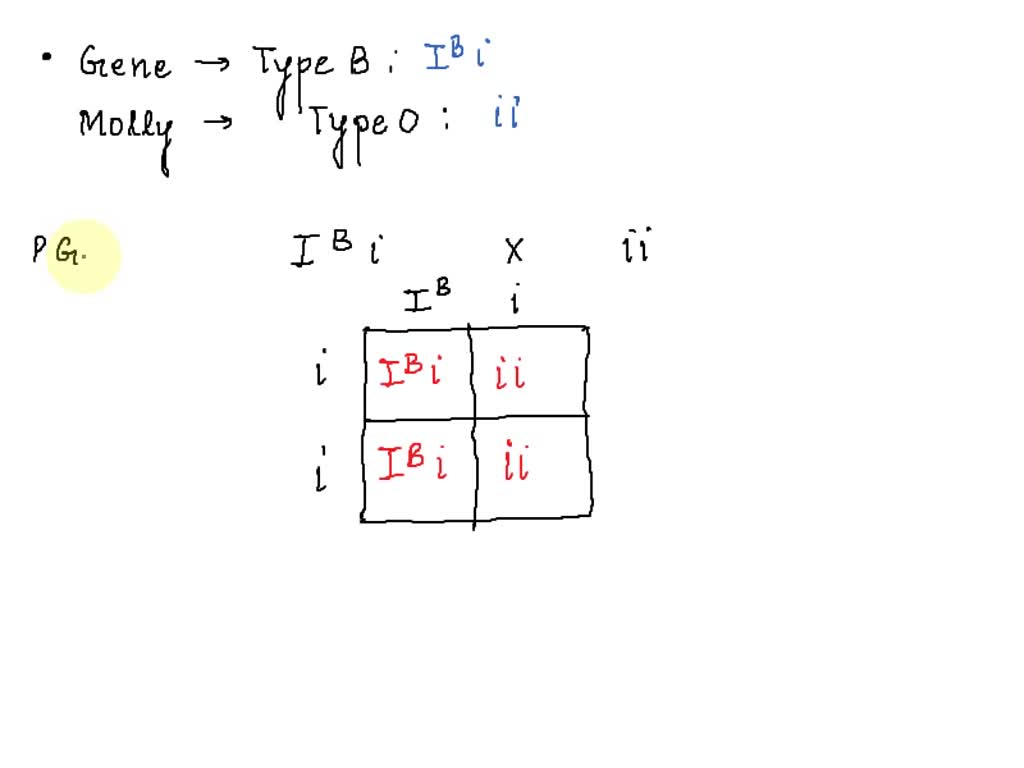 • Gene → Type B : I^B i
Molly → Type O : ii
P G. I^B i X ii
I^B i
i I^B i ii
i I^B i ii